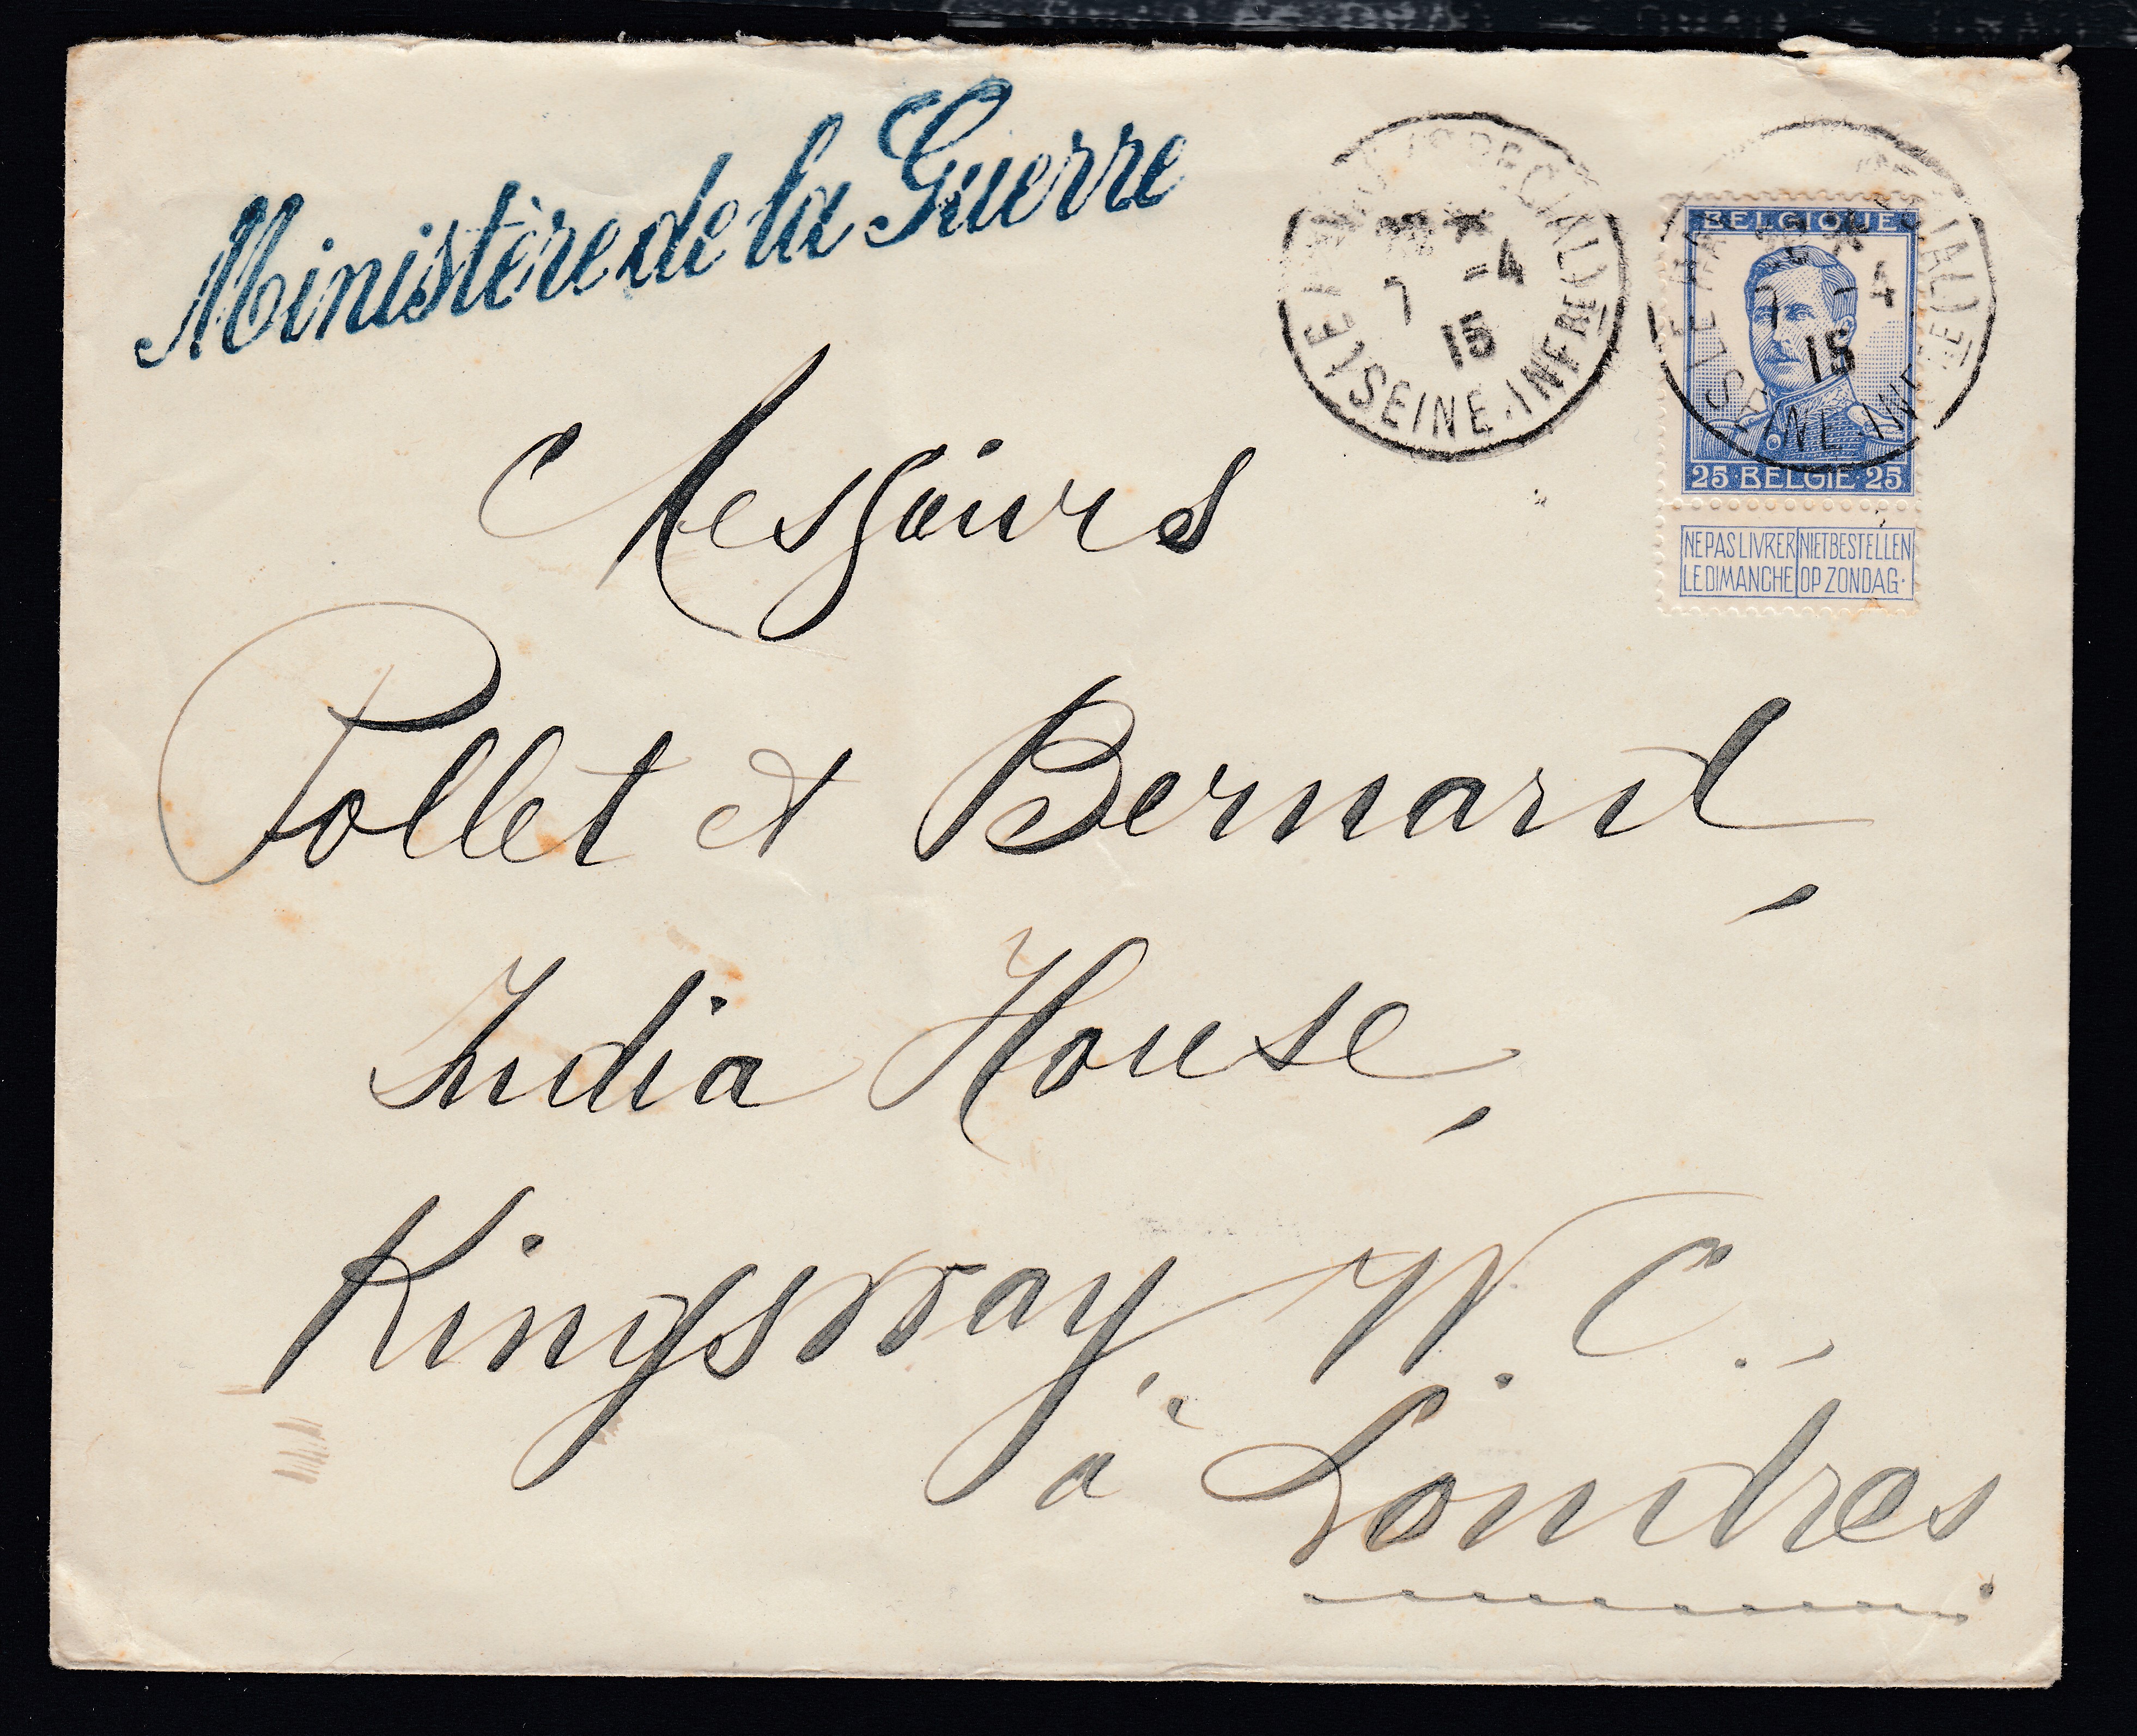 Ministère de la Guerre
LE HAVRE (SPECIAL)
7 -4
15
(SEINE-INFRE)
BELGIQUE
7 -4
15
25 BELGIE 25
NE PAS LIVRER LE DIMANCHE
NIET BESTELLEN OP ZONDAG.
Messieurs
Pollet et Bernard,
India House,
Kingsway, W. C.,
à Londres